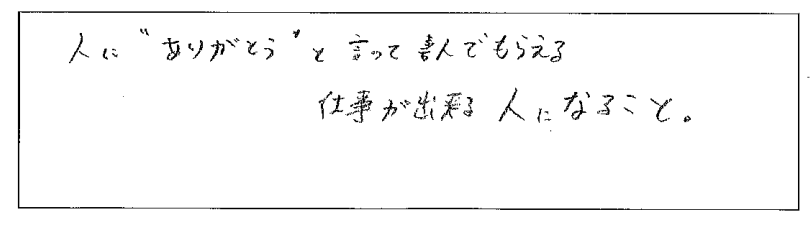 人に"ありがとう"と言って喜んでもらえる
仕事が出来る人になること。